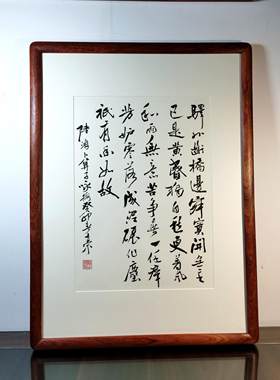 驛外斷橋邊寂寞開無主
已是黄昏獨自愁更著風
和雨無意苦争春一任群
芳妒零落成泥碾作塵
祇有香如故
陸游卜算子咏梅癸卯